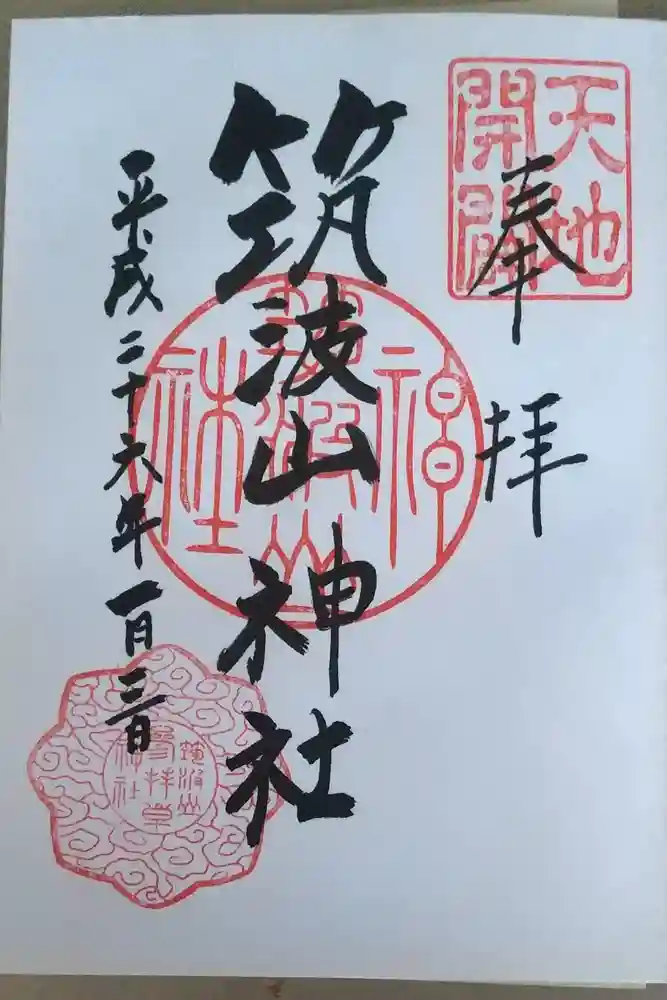 奉拝
天地開闢
筑波山神社
筑波山神社
平成二十六年一月三日
筑波山
拝堂
神社